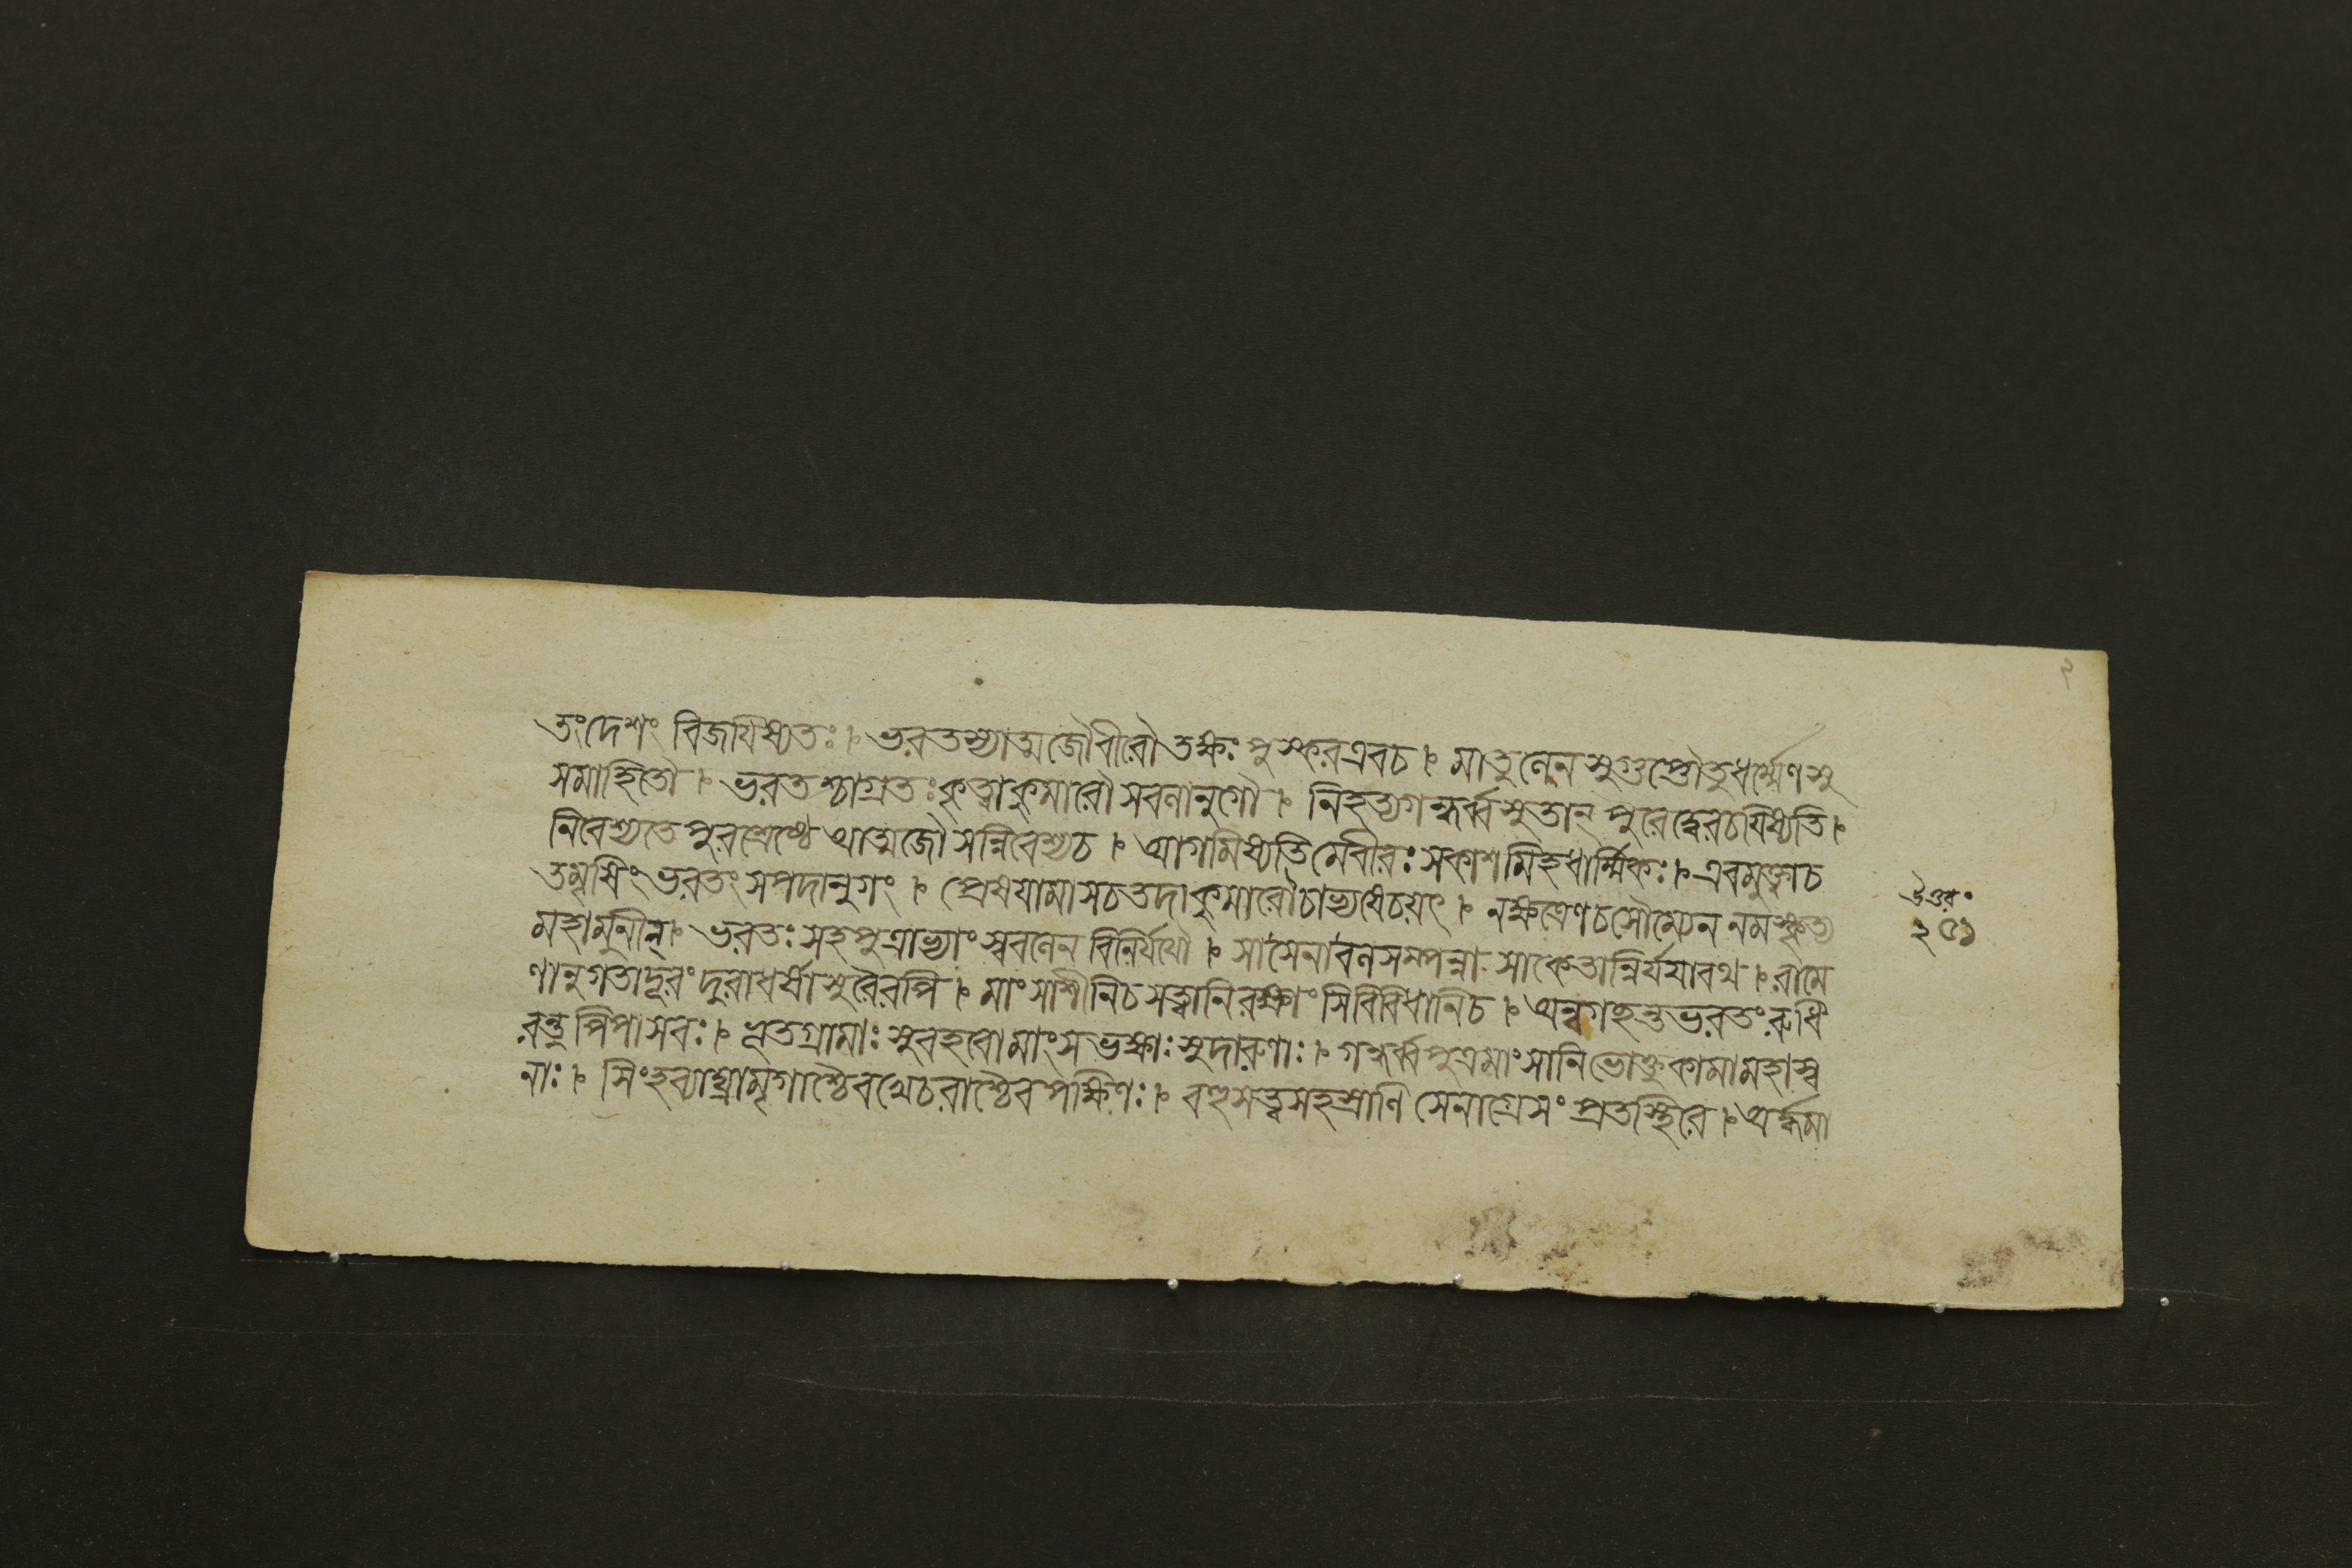 তংদেশং বিজযিষ্যতঃ ৷ ভরতস্যাত্মজৌবীরৌ তক্ষঃ পুস্করএবচ ৷ মাতুলেন সুগুপ্তৌতুধর্ম্মেণসু
সমাহিতৌ ৷ ভরতশ্চাগ্রতঃ কৃত্বাকুমারৌ সবলানুগৌ ৷ নিহত্যগন্ধর্ব্বসুতান্ পুরেদ্বেরচযিষ্যতি ৷
নিবেশ্যতে পুরশ্রেষ্ঠে আত্মজৌ সন্নিবেশ্যচ ৷ আগমিষ্যতি মেবীরঃ সকাশমিহধার্ম্মিকঃ ৷ এবমুক্ত্বাচ
তমৃষিং ভরতং সপদানুগং ৷ প্রেষযামাসচতদা কুমারৌচাভ্যষেচয়ৎ ৷ নক্ষত্রেণচসৌম্যেন নমস্কৃত্য
মহামুনীন্ ৷ ভরতঃ সহপুত্রাভ্যাং স্ববলেন বিনির্যযৌ ৷ সাসেনাবলসম্পন্না সাকেতান্নির্যযাবথ ৷ রামে
ণানুগতাদূরং দুরাধর্ষাসুরৈরপি ৷ মাংসাশীনিচসত্ত্বানিরক্ষাংসিবিবিধানিচ ৷ অন্বগচ্ছন্তভরতং রুধি
রস্য পিপাসবঃ ৷ ভূতগ্রামাঃ সুবহবোমাংসভক্ষাঃ সুদারুণাঃ ৷ গন্ধর্ব্বপুত্রমাংসানিভোক্তুকামামহাস্ব
নাঃ ৷ সিংহব্যাঘ্রামৃগাশ্চৈবখেচরাশ্চৈবপক্ষিণঃ ৷ বহুসত্ত্বসহস্রাণি সেনাগ্রেসংপ্রতস্থিরে ৷ অর্দ্ধমা
উত্তর॰
২৫১
২